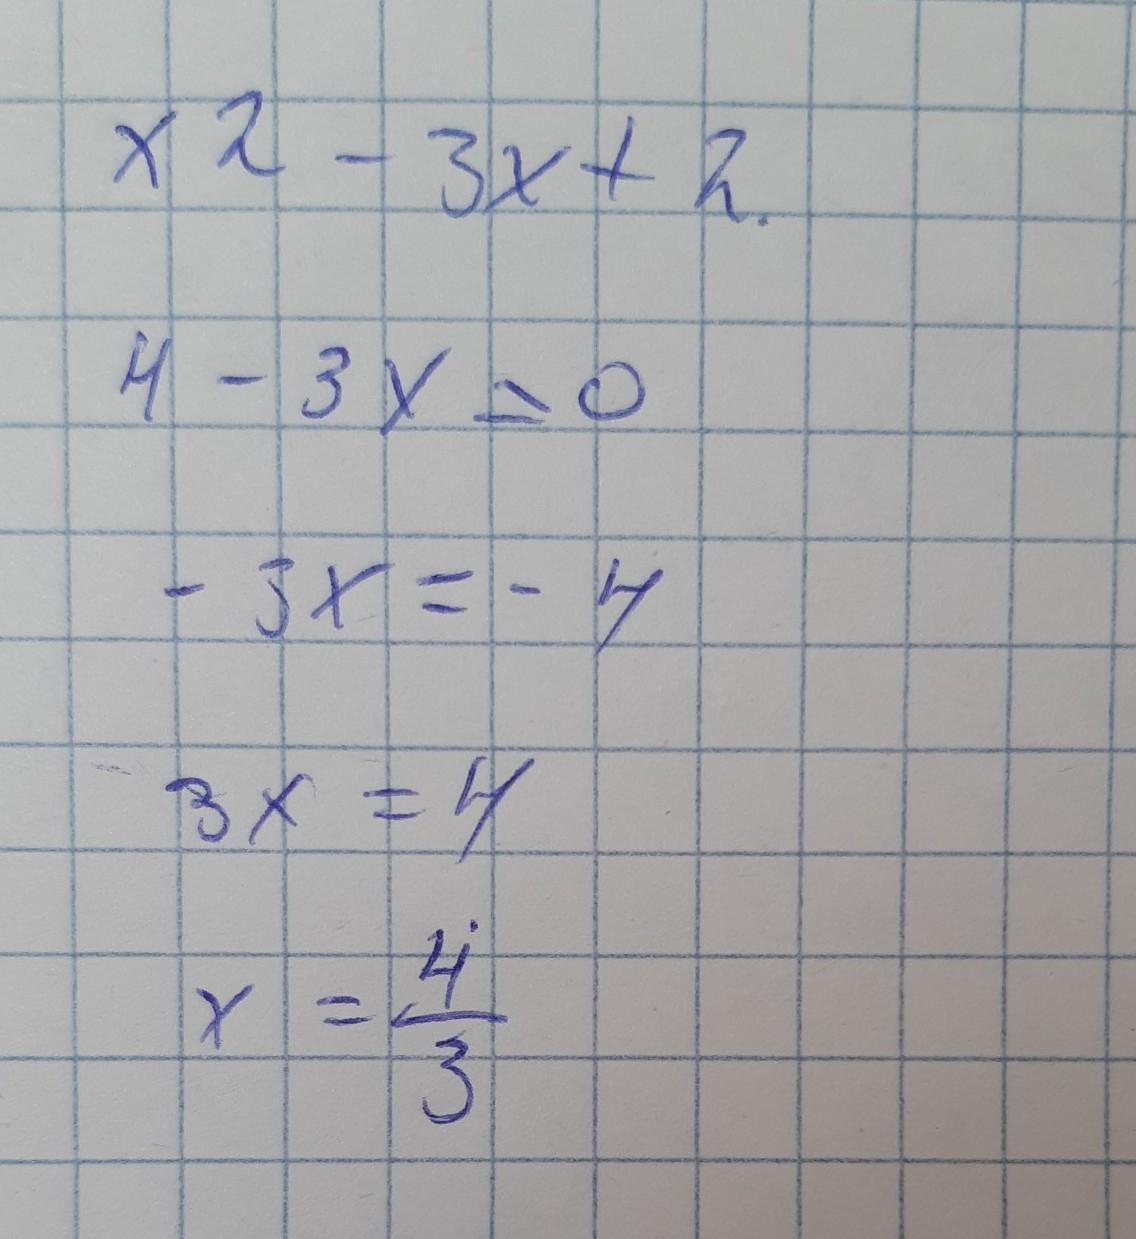 x 2 - 3x + 2.
4 - 3x = 0
- 3x = - 4
3x = 4
x = 4/3